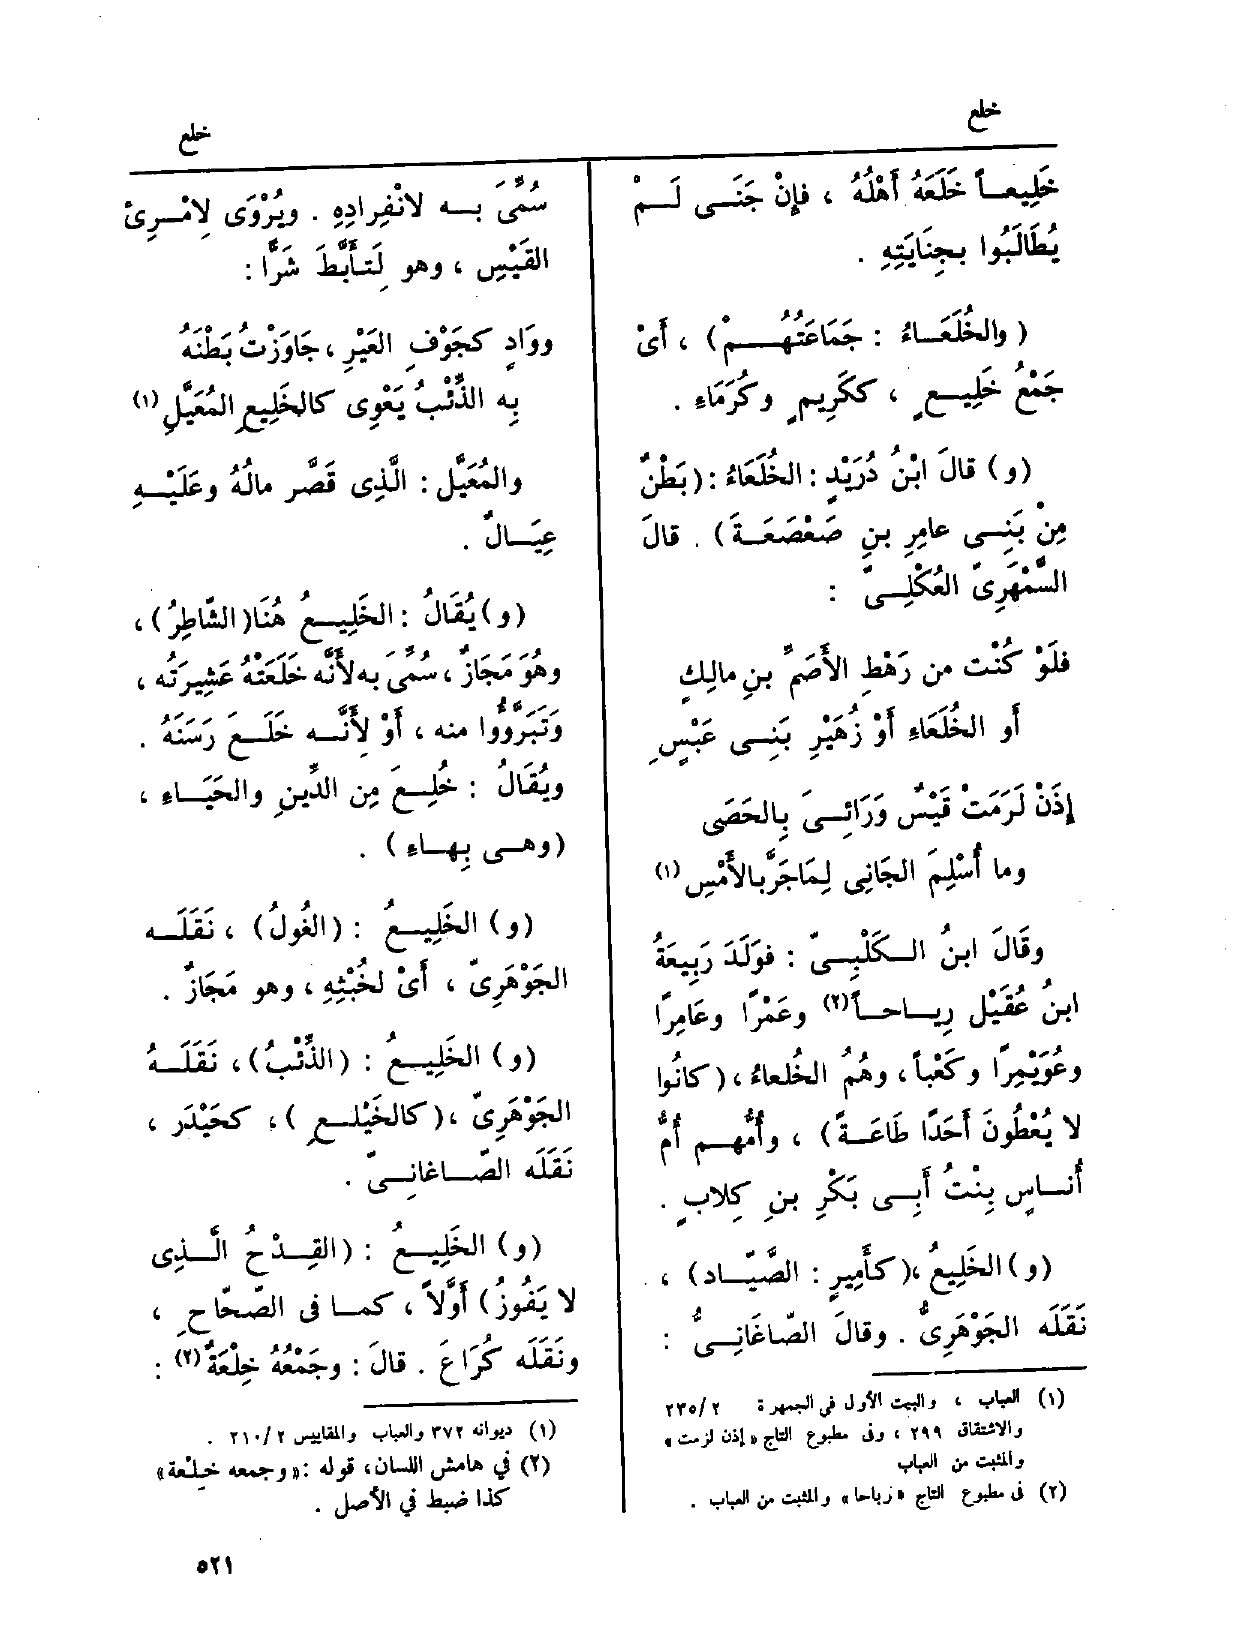 خلع
خلع
خَلِيعاً خَلَعَهُ أَهْلُهُ ، فإِنْ جَنَى لَمْ
يُطَالَبُوا بجِنَايَتِهِ .
( والخُلَعَاءُ : جَمَاعَتُهُمْ ) ، أَىْ
جَمْعُ خَلِيعٍ ، ككَرِيمٍ وكُرَمَاءِ .
(و) قالَ ابْنُ دُرَيْدٍ : الخُلَعَاءُ : (بَطْنٌ
مِنْ بَنِى عامِرِ بنِ صَعْصَعَةَ ) . قالَ
السَّمْهَرِىّ العُكْلِىّ :
فلَوْ كُنْت من رَهْطِ الأَصَمِّ بنِ مالِكٍ
أَو الخُلَعَاءِ أَوْ زُهَيْرِ بَنِى عَبْسِ
إِذَنْ لَرَمَتْ قَيْسٌ وَرَائِىَ بِالحَصَى
وما أُسْلِمَ الجَانِى لِمَا جَرَّ بالأَمْسِ (١)
وقَالَ ابنُ الكَلْبِىّ : فوَلَدَ رَبِيعَةُ
ابنُ عُقَيْل رِيَاحاً (٢) وعَمْرًا وعَامِرًا
وعُوَيْمِرًا وكَعْباً ، وهُمُ الخُلعاءُ ، (كانُوا
لا يُعْطُونَ أَحَدًا طَاعَةً ) ، وأُمُّهم أُمُّ
أُنَاسٍ بِنْتُ أَبِى بَكْرِ بنِ كِلابٍ .
(و) الخَلِيعُ ، (كأَمِيرٍ : الصَّيّاد) ،
نَقَلَه الجَوْهَرِىُّ . وقالَ الصّاغَانِىُّ :
(١) العباب ، والبيت الأول فى الجمهرة ٢٣٥/٢
والاشتقاق ٢٩٩ ، وفى مطبوع التاج « إذن لزمت »
والمثبت من العباب
(٢) فى مطبوع التاج « زباحا » والمثبت من العباب .
سُمِّىَ به لانْفِرادِهِ . ويُرْوَى لِامْرِئِ
القَيْسِ ، وهو لِتَأَبَّطَ شَرًّا :
ووَادٍ كجَوْفِ العَيْرِ ، جَاوَزْتُ بَطْنَهُ
بِه الذِّئْبُ يَعْوِى كالخَلِيعِ المُعَيَّلِ (١)
والمُعَيَّل : الَّذِى قَصَّر مالُهُ وعَلَيْهِ
عِيَالٌ .
(و) يُقَالُ : الخَلِيعُ هُنَا (الشّاطِرُ) ،
وهُوَ مَجَازٌ ، سُمِّىَ به لأَنَّه خَلَعَتْهُ عَشِيرَتُه ،
وَتَبَرَّؤُوا منه ، أَوْ لِأَنَّه خَلَعَ رَسَنَهُ .
ويُقَالُ : خُلِعَ مِن الدِّينِ والحَيَاءِ ،
(وهى بِهاءٍ ) .
(و) الخَلِيعُ : (الغُولُ) ، نَقَلَه
الجَوْهَرِىّ ، أَىْ لخُبْثِهِ ، وهو مَجَازٌ .
(و) الخَلِيعُ : (الذِّئْبُ) ، نَقَلَهُ
الجَوْهَرِىّ ، (كالخَيْلعِ ) ، كحَيْدَر ،
نَقَلَه الصّاغانِىّ .
(و) الخَلِيعُ : (القِدْحُ الَّذِى
لا يَفُوزُ) أَوَّلاً ، كما فى الصّحَاحِ ،
ونَقَلَه كُرَاعَ . قالَ : وجَمْعُهُ خِلْعَةٌ (٢) :
(١) ديوانه ٣٧٢ والعباب والمقاييس ٢١٠/٢ .
(٢) في هامش اللسان، قوله : «وجمعه خلعة»
كذا ضبط في الأصل .
٥٢١